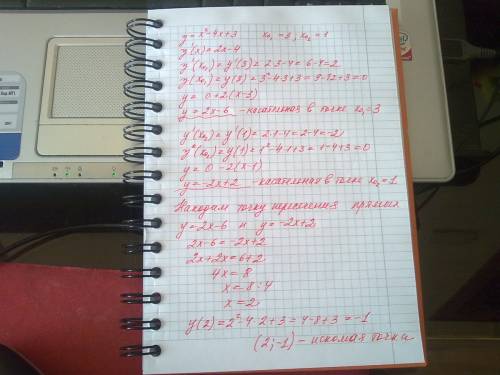 y=x²-4x+3 x₀₁=3; x₀₂=1
y'(x)=2x-4
y'(x₀₁)=y'(3)=2·3-4=6-4=2
y(x₀₁)=y(3)=3²-4·3+3=9-12+3=0
y= 0+2(x-3)
y=2x-6 - касательная в точке x₀₁=3
y'(x₀₂)=y'(1)=2·1-4=2-4=-2
y(x₀₂)=y(1)=1²-4·1+3=1-4+3=0
y= 0-2(x-1)
y=-2x+2 - касательная в точке x₀₂=1
Находим точку пересечения прямых
y=2x-6 и y=-2x+2
2x-6=-2x+2
2x+2x=6+2
4x=8
x=8:4
x=2
y(2)=2²-4·2+3=4-8+3=-1
(2;-1) - искомая точка